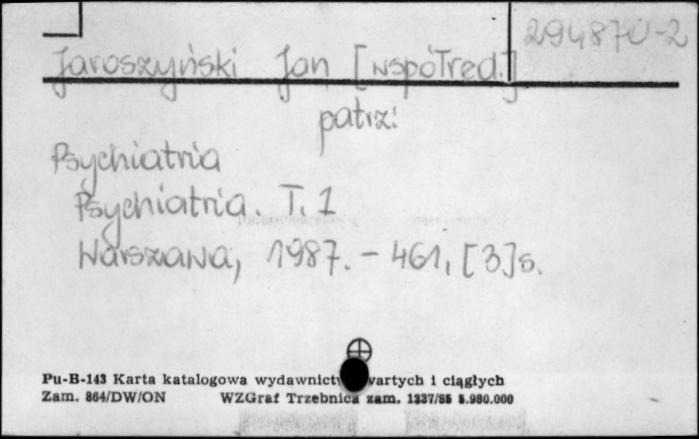 294870-2
Jaroszyński Jan [współred.]
patrz:
Psychiatria
Psychiatria. T. 1
Warszawa, 1987. - 461, [3]s.
Pu-B-143 Karta katalogowa wydawnictw zwartych i ciągłych
Zam. 864/DW/ON WZGraf Trzebnica zam. 1337/85 5.980.000